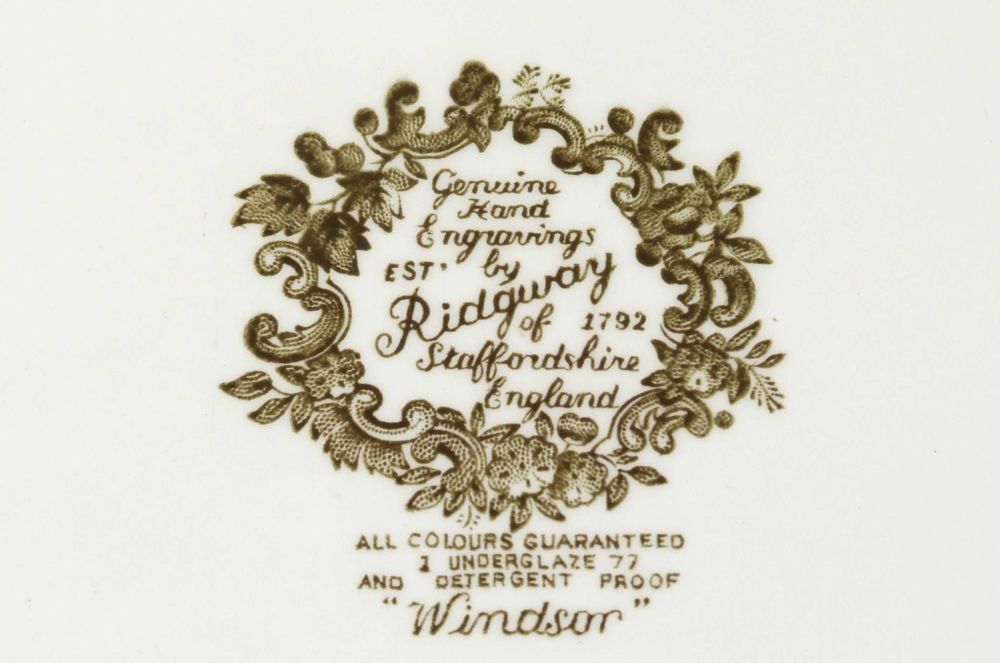 Genuine
Hand
Engravings
EST' by
Ridgway
of 1792
Staffordshire
England
ALL COLOURS GUARANTEED
1 UNDERGLAZE 77
AND DETERGENT PROOF
"Windsor"